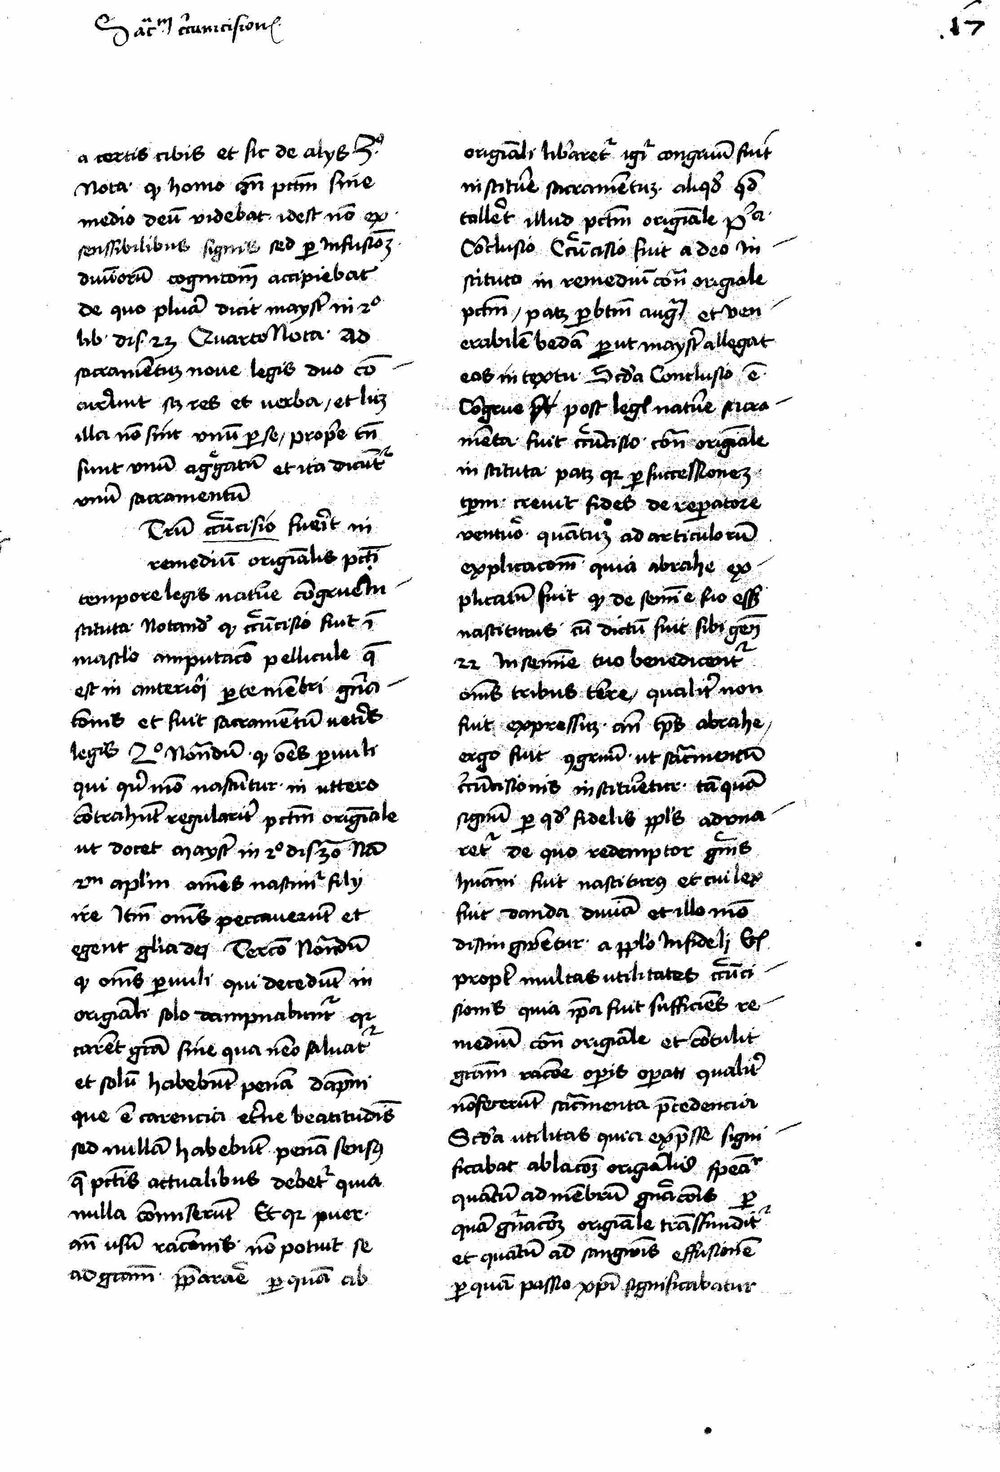 Sacm circumcisionis
17
a certis cibis et sic de alys 3o
Nota qp homo an pctm sine
medio deū videbat idest nō ex
sensibilibus signis sed per infusionē
diuinorū cognitom accipiebat
de quo plura dicit maystr in 2o
lib dis 23 Quarto Nota Ad
sacramentum noue legis duo cō
currunt scz res et verba / et licz
illa nō sint unū per se / prope tn
sunt unū aggregatū et ita dicunt
unū sacramentū
Trū circūcisio fuerit in
remediū origīalis pcti
tempore legis nature congrue in
stituta Notand qp circūcisio fuit ī
masclo amputaco pellicule q
est in anteriori parte membri gna
tōnis et fuit sacramentū veteris
legis 2o Notandū qp oēs paruuli
qui quo modo nascuntur in uttero
cōtrahūt regulariter pctm origīale
ut docet maystr in 2o dis 30 Nā
2m aplm omēs nascimur fily
ire Itm omīs peccauerunt et
egent glia dei Tercō Notandū
qp omīs paruuli qui decedunt in
originali solo dampnabuntur qr
carent gra sine qua nemo saluatr
et solū habebunt penā dampni
que ē carencia eterne beatitudinis
sed nullā habebunt penā sensus
q pctis actualibus debetr quia
nulla cōmiserunt Et qr puer
an usū racōnis nō potuit se
ad gram pparare per quam ab
originali liberaretr igr congruū fuit
instituere sacramentum aliqd qd
tolleret illud pctm originale Pa
Cōclusio Circūcisio fuit a deo in
stituto in remediū con origiale
pctm / patz per btm aug et ven
erabilem bedā put maystr allegat
eos in textu Scda Conclusio ē
Cōgrue post legē nature sacra
menta fuit circūcisio con originale
instituta patz qr per successionem
tpm creuit fides de reparatore
venturo quantum ad articulorū
explicacom quia abrahe ex
plicatū fuit qp de semine suo esset
nasciturus cū dictū fuit sibi gen
22 In semine tuo benedicentr
omīs tribus terre / qualiter non
fuit expressum an tps abrahe /
ergo fuit 9gruum ut sacramentū
circūcisionis institueretur tāquā
signū per qd fidelis ppls aduna
retr de quo redemptor gnis
humani fuit nasciturus et cui lex
fuit danda diuina et illo modo
distinguerentur a pplo infideli Vel
propter multas utilitates circūci
sionis quia ipsa fuit sufficiens re
mediū con originale et contulit
gram racone operis operati qualiter
nō fecerunt sacramenta precedencia
Scda utilitas quia expresse signi
ficabat ablacōem originalis speālr
quantū ad membrum gnacōnis per
quā gnacōem originale transfunditr
et quantū ad sanguinis effusionem
per quā passio xpi significabatur